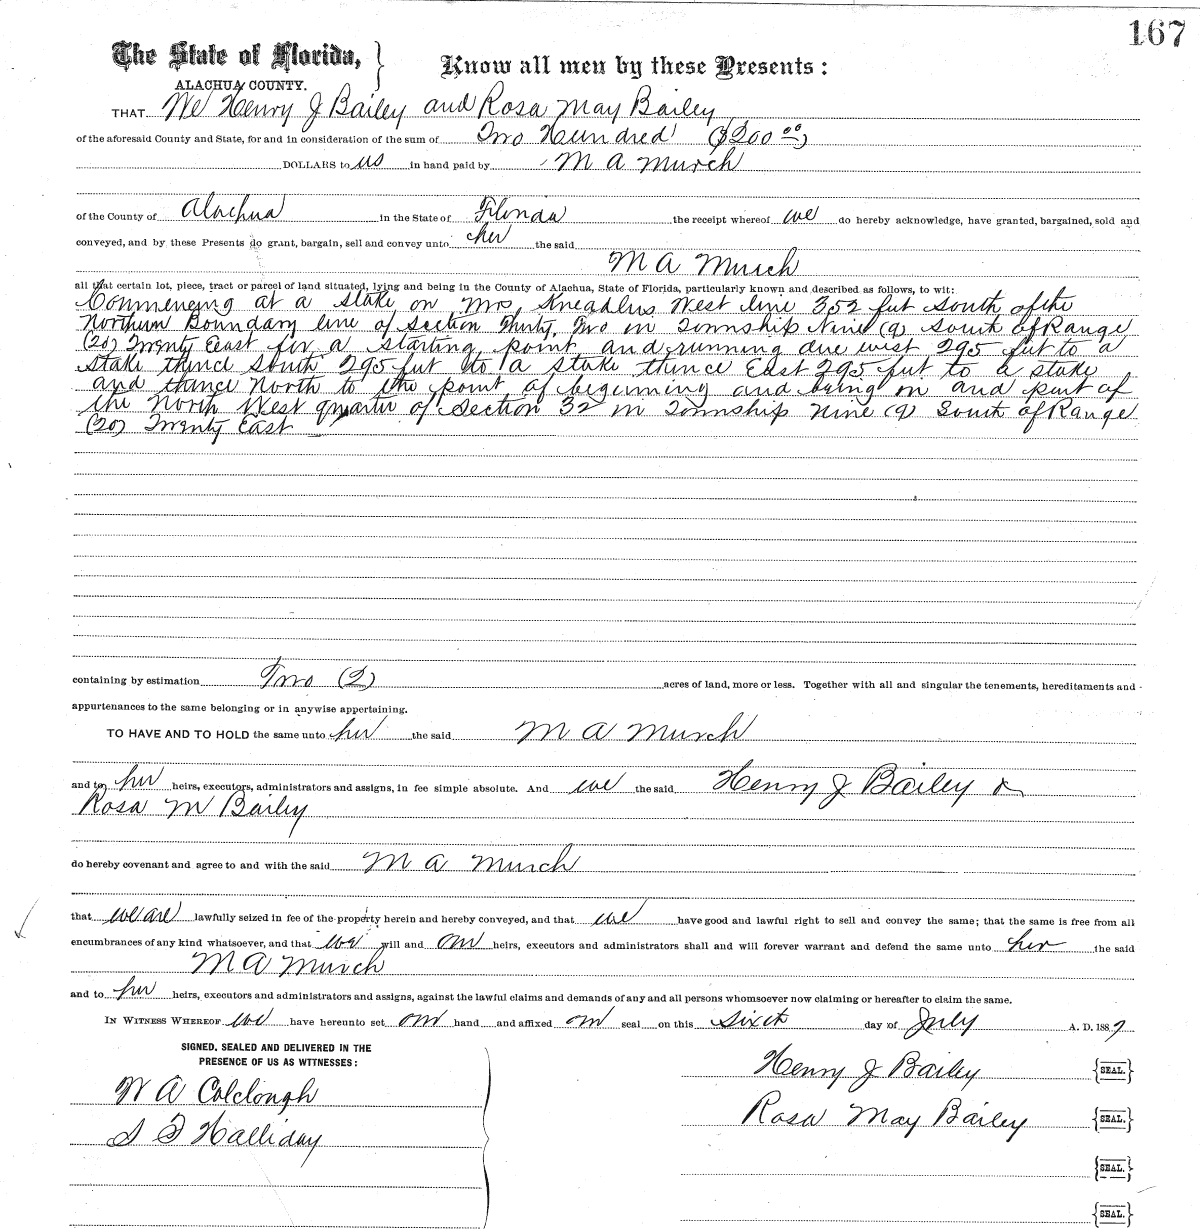 167
The State of Florida,
ALACHUA COUNTY.
Know all men by these Presents:
THAT We Henry J Bailey and Rosa May Bailey
of the aforesaid County and State, for and in consideration of the sum of Two Hundred ($200 00)
DOLLARS to us in hand paid by M A Murch
of the County of Alachua in the State of Florida the receipt whereof we do hereby acknowledge, have granted, bargained, sold and
conveyed, and by these Presents do grant, bargain, sell and convey unto her the said
M A Murch
all that certain lot, piece, tract or parcel of land situated, lying and being in the County of Alachua, State of Florida, particularly known and described as follows, to wit:
Commencing at a stake on Mrs West line 352 feet South of the
Northern Boundary line of Section Thirty Two in Township Nine (9) South of Range
(20) Twenty East for a starting point and running due west 295 feet to a
stake thence South 295 feet to a stake thence East 295 feet to a stake
and thence North to the point of beginning and being on and part of
the North West quarter of Section 32 in Township Nine (9) South of Range
(20) Twenty East
containing by estimation Two (2) acres of land, more or less. Together with all and singular the tenements, hereditaments and
appurtenances to the same belonging or in anywise appertaining.
TO HAVE AND TO HOLD the same unto her the said M A Murch
and to her heirs, executors, administrators and assigns, in fee simple absolute. And we the said Henry J Bailey &
Rosa M Bailey
do hereby covenant and agree to and with the said M A Murch
that we are lawfully seized in fee of the property herein and hereby conveyed, and that we have good and lawful right to sell and convey the same; that the same is free from all
encumbrances of any kind whatsoever, and that we will and our heirs, executors and administrators shall and will forever warrant and defend the same unto her the said
M A Murch
and to her heirs, executors and administrators and assigns, against the lawful claims and demands of any and all persons whomsoever now claiming or hereafter to claim the same.
IN WITNESS WHEREOF we have hereunto set our hand and affixed our seal on this Sixth day of July A. D. 1887
SIGNED, SEALED AND DELIVERED IN THE
PRESENCE OF US AS WITNESSES:
Henry J Bailey {SEAL.}
W A Colclough
Rosa May Bailey {SEAL.}
S F Halliday
{SEAL.}
{SEAL.}